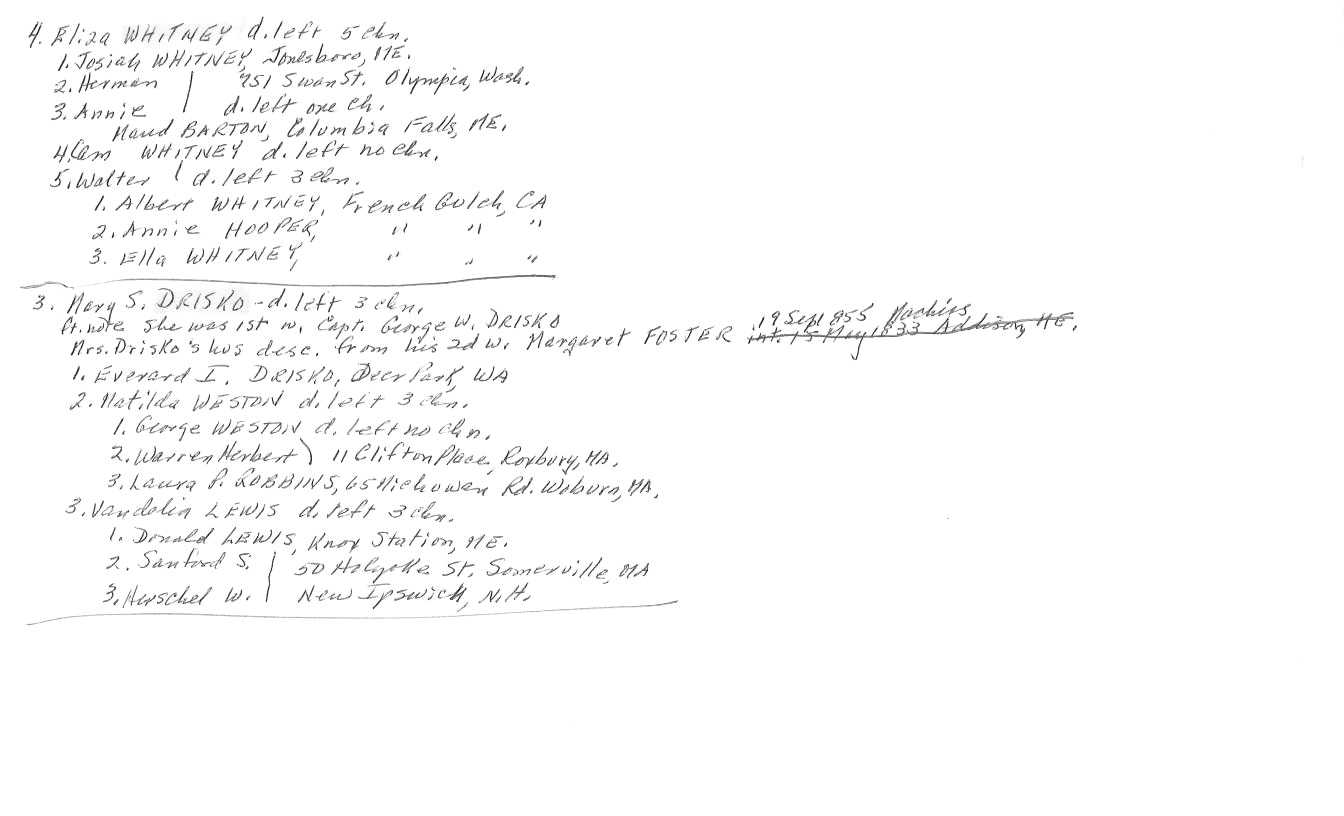 4. Eliza WHITNEY d. left 5 chn.
1. Josiah WHITNEY, Jonesboro, ME.
2. Herman | 951 Swan St. Olympia, Wash.
3. Annie | d. left one ch.
Maud BARTON, Columbia Falls, ME.
4. WHITNEY d. left no chn.
5. Walter | d. left 3 chn.
1. Albert WHITNEY, French Gulch, CA
2. Annie HOOPER, " " "
3. Ella WHITNEY, " " "
3. Mary S. DRISKO - d. left 3 chn.
Pt. note She was 1st w. Capt. George W. DRISKO
19 Sept 1855 Machias
Mrs. Drisko's hus desc. from his 2d w. Margaret FOSTER int. 15 May 1833 Addison, ME.
1. Everard I. DRISKO, Deer Park, WA
2. Matilda WESTON d. left 3 chn.
1. George WESTON d. left no chn.
2. Warren Herbert ) 11 Clifton Place, Roxbury, MA.
3. Laura P. ROBBINS, 65 Rd. Woburn, MA.
3. Vandelia LEWIS d. left 3 chn.
1. Donald LEWIS, Knox Station, ME.
2. Sanford S. | 50 Holyoke St. Somerville, MA
3. Herschel W. | New Ipswich, N.H.